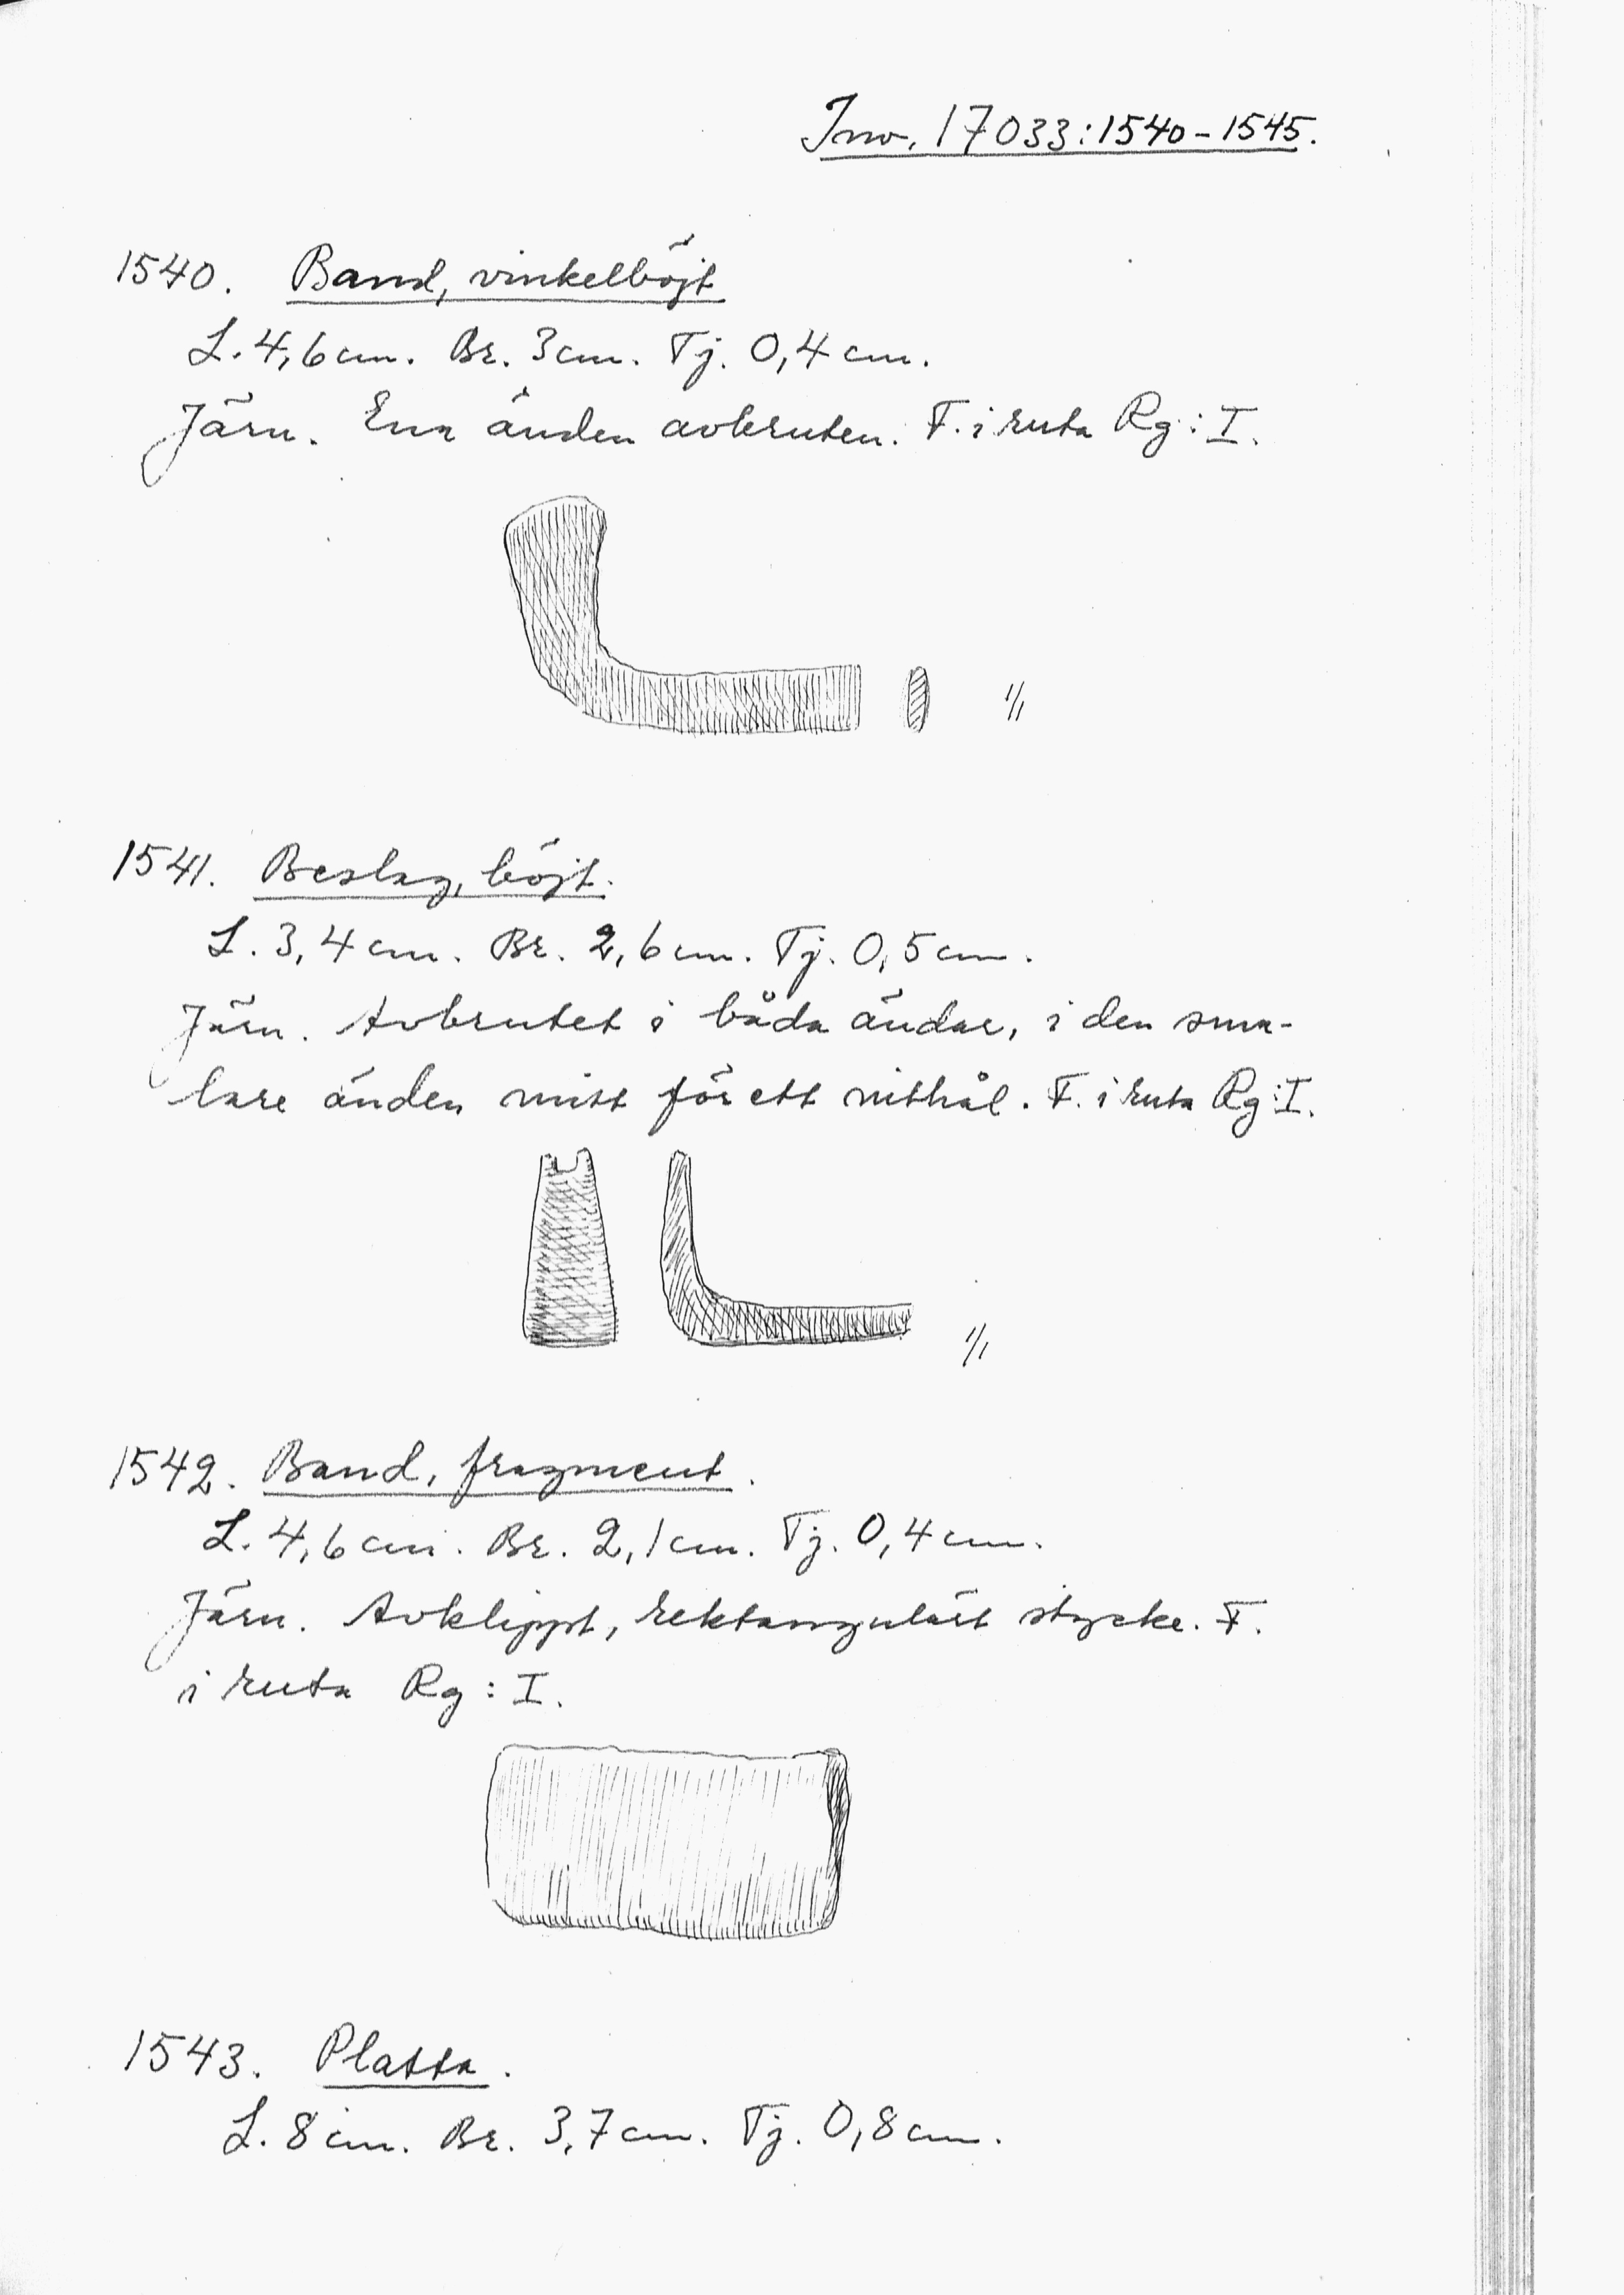 Inv. 17033:1540-1545.
1540. Band, vinkelböjt
L. 4,6 cm. Br. 3 cm. Tj. 0,4 cm.
Järn. Ena änden avbruten. F. i ruta Rg:I.
1/1
1541. Beslag, böjt.
L. 3,4 cm. Br. 2,6 cm. Tj. 0,5 cm.
Järn. Avbrutet i båda ändar, i den sma-
lare änden mitt för ett nithål. F. i ruta Rg:I.
1/1
1542. Band, fragment.
L. 4,6 cm. Br. 2,1 cm. Tj. 0,4 cm.
Järn. Avklippt, rektangulärt stycke. F.
i ruta Rg:I.
1543. Platta.
L. 8 cm. Br. 3,7 cm. Tj. 0,8 cm.